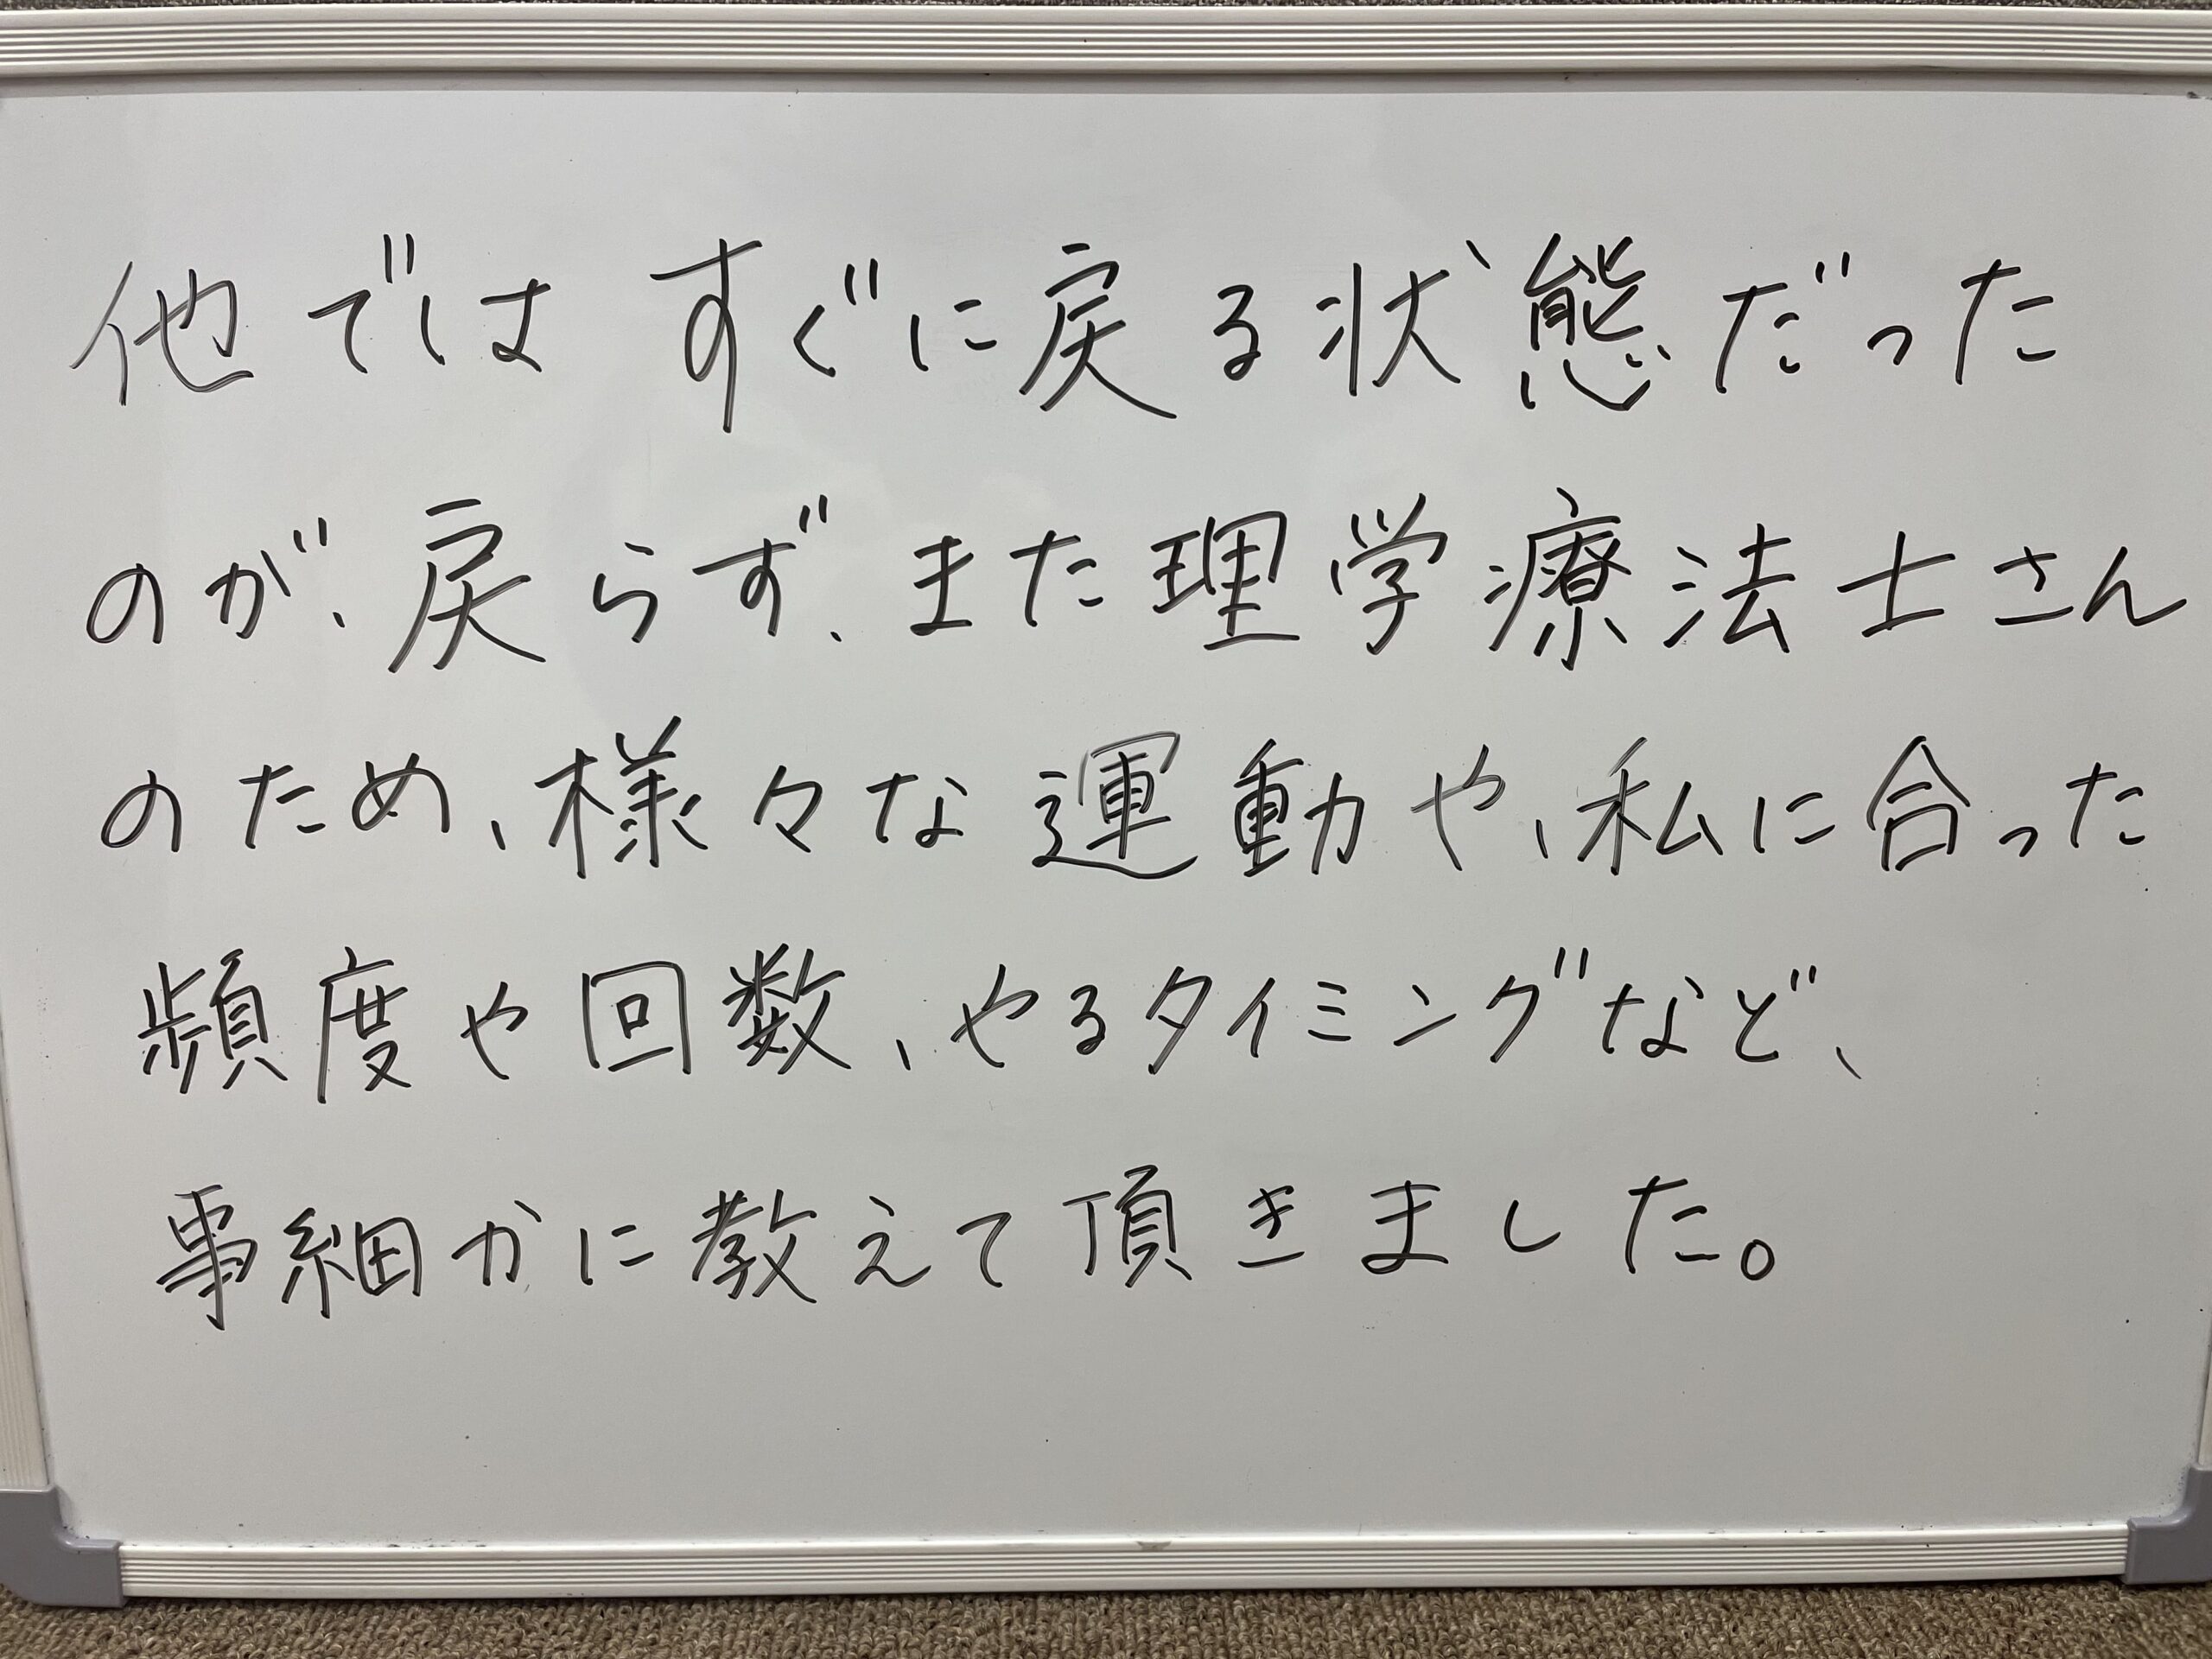 他ではすぐに戻る状態だった
のが、戻らず、また理学療法士さん
のため、様々な運動や、私に合った
頻度や回数、やるタイミングなど、
事細かに教えて頂きました。